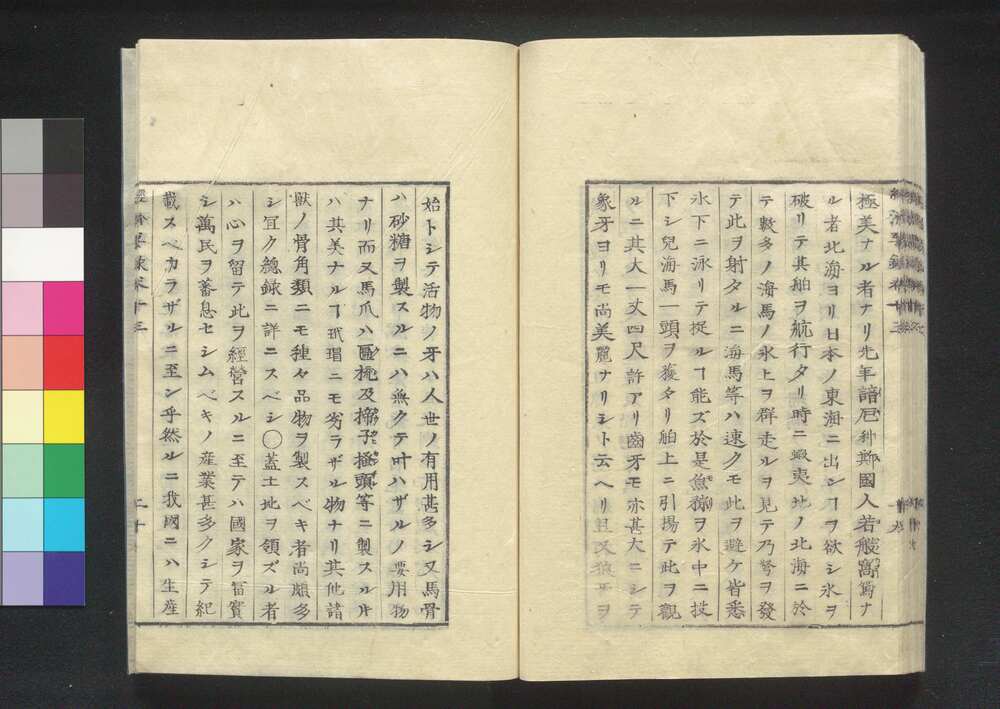 極美ナル者ナリ先年諳厄利鄭國人若般窩爾ナ
ル者北海ヨリ日本ノ東海ニ出ンヿヲ欲シ氷ヲ
破リテ其舶ヲ航行タリ時ニ蝦夷地ノ北海ニ於
テ數多ノ海馬ノ氷上ヲ群走ルヲ見テ乃弩ヲ發
テ此ヲ射タルニ海馬等ハ速クモ此ヲ避ケ皆悉
氷下ニ泳リテ捉ルヿ能ズ於是魚猟ヲ氷中ニ投
下シ兒海馬一頭ヲ獲タリ舶上ニ引揚テ此ヲ觀
ルニ其大一丈四尺許アリ齒牙モ亦甚大ニシテ
象牙ヨリモ尚美麗ナリシト云ヘリ且又狼牙ヲ
始トシテ活物ノ牙ハ人世ノ有用甚多シ又馬骨
ハ砂糖ヲ製スルニハ無クテ叶ハザルノ要用物
ナリ而又馬爪ハ匾梳及揥子搔頭等ニ製スルキ
ハ其美ナルヿ玳瑁ニモ劣ラザル物ナリ其他諸
獸ノ骨角類ニモ種々品物ヲ製スベキ者尚頗多
シ宜ク總録ニ詳ニスベシ〇蓋土地ヲ領ズル者
ハ心ヲ留テ此ヲ經營スルニ至テハ國家ヲ富實
シ萬民ヲ蕃息セシムベキノ産業甚多クシテ紀
載スベカラザルニ至ン乎然ルニ我國ニハ生産
二十